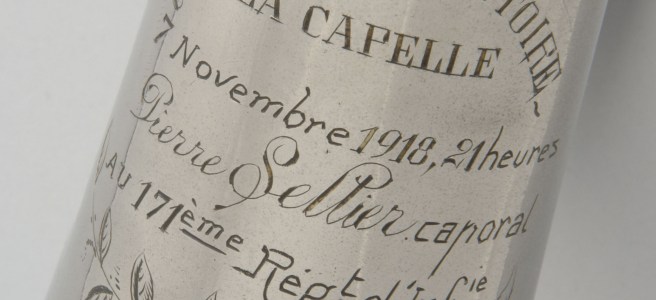 TOIRE~
LA CAPELLE
7 Novembre 1918, 21 heures
Pierre Sellier. caporal
AU 171ème Régt d'Infie